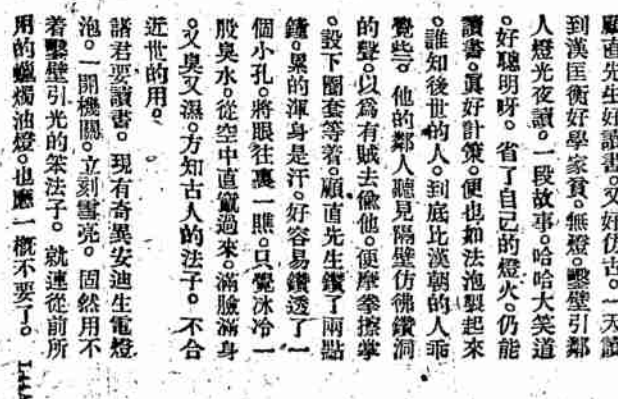 顧直先生好讀書。又好仿古。一天讀
到漢匡衡好學家貧。無燈。鑿壁引鄰
人燈光夜讀。一段故事。哈哈大笑道
。好聰明呀。省了自己的燈火。仍能
讀書。眞好計策。便也如法泡製起來
。誰知後世的人。到底比漢朝的人乖
覺些。他的鄰人聽見隔壁仿彿鑽洞
的聲。以爲有賊去偸他。便摩拳擦掌
。設下圈套等着。顧直先生鑽了兩點
鐘。累的渾身是汗。好容易鑽透了一
個小孔。將眼往裏一瞧。只覺冰冷一
股臭水。從空中直竄過來。滿臉滿身
。又臭又濕。方知古人的法子。不合
近世的用。
諸君要讀書。現有奇異安迪生電燈
泡。一開機關。立刻雪亮。固然用不
着鑿壁引光的笨法子。就連從前所
用的蠟燭油燈。也應一槪不要了。